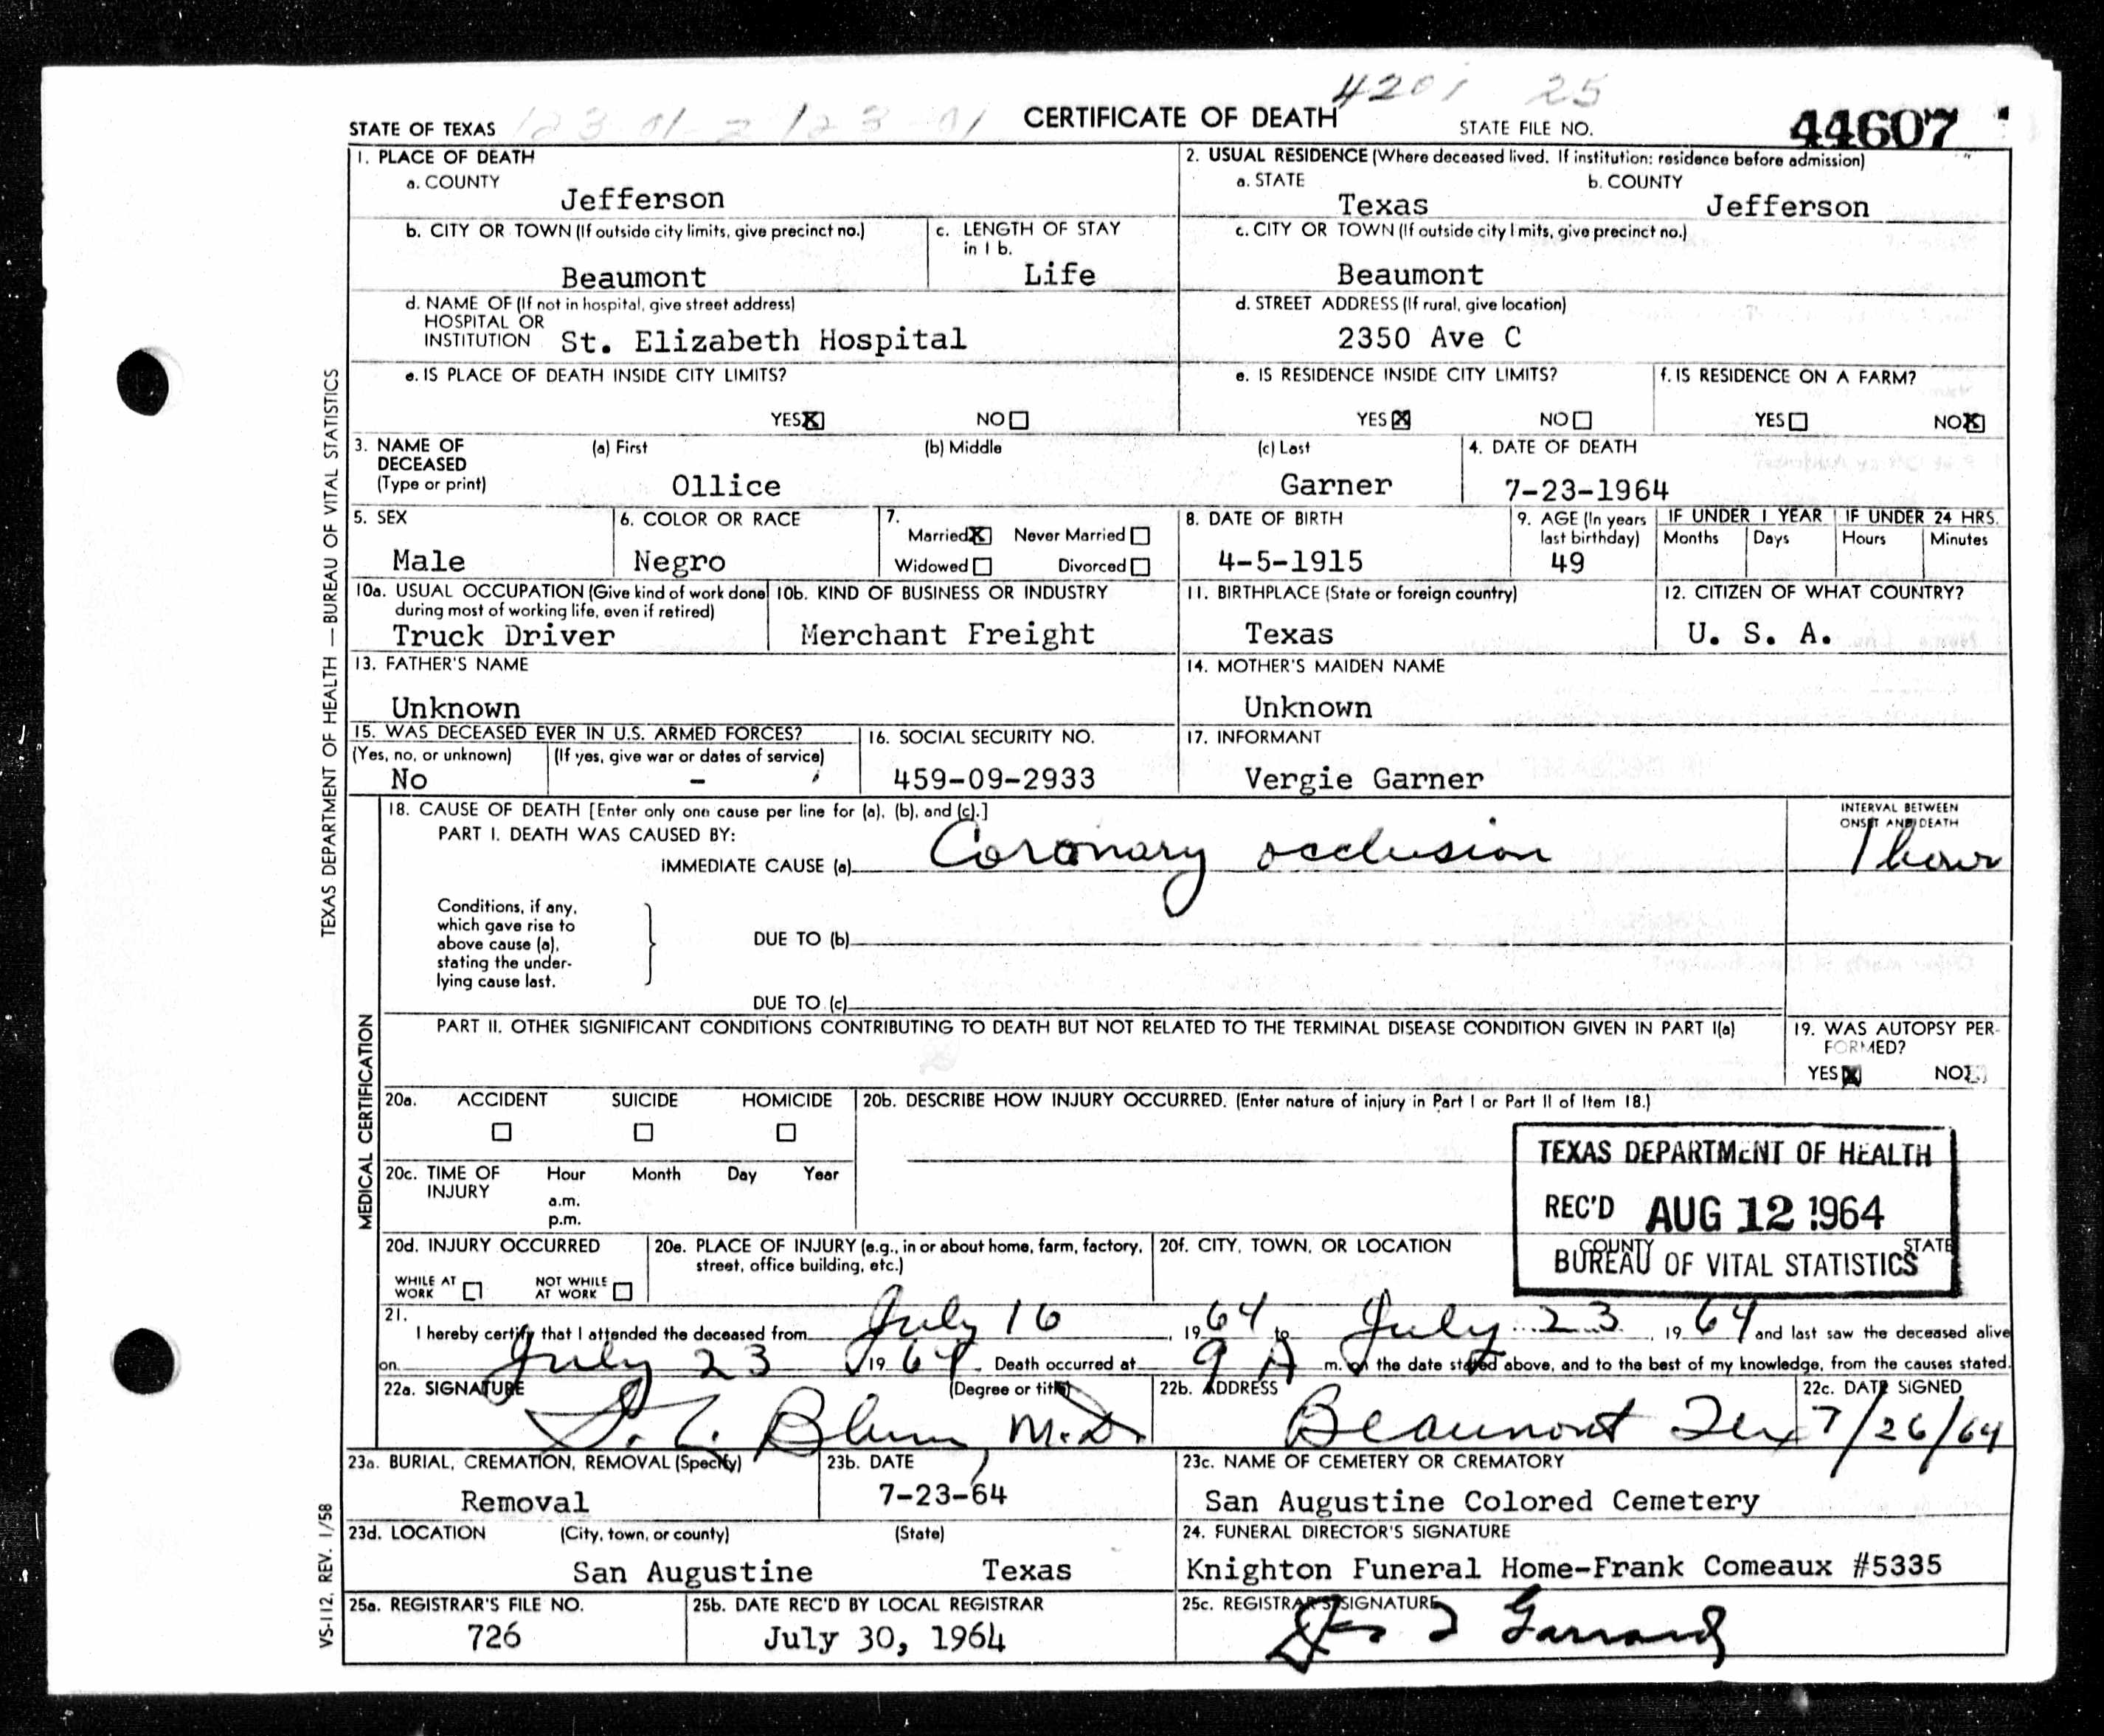 4201 25
STATE OF TEXAS 123 01-2 123-01 CERTIFICATE OF DEATH STATE FILE NO. 44607
1. PLACE OF DEATH
a. COUNTY
Jefferson
2. USUAL RESIDENCE (Where deceased lived. If institution: residence before admission)
a. STATE b. COUNTY
Texas Jefferson
b. CITY OR TOWN (If outside city limits, give precinct no.)
Beaumont
c. LENGTH OF STAY
in 1 b.
Life
c. CITY OR TOWN (If outside city l mits, give precinct no.)
Beaumont
d. NAME OF (If not in hospital, give street address)
HOSPITAL OR
INSTITUTION St. Elizabeth Hospital
d. STREET ADDRESS (If rural, give location)
2350 Ave C
e. IS PLACE OF DEATH INSIDE CITY LIMITS?
YES X NO
e. IS RESIDENCE INSIDE CITY LIMITS?
YES X NO
f. IS RESIDENCE ON A FARM?
YES NO X
3. NAME OF
DECEASED
(Type or print)
(a) First (b) Middle (c) Last
Ollice Garner
4. DATE OF DEATH
7-23-1964
5. SEX
Male
6. COLOR OR RACE
Negro
7.
Married X Never Married
Widowed Divorced
8. DATE OF BIRTH
4-5-1915
9. AGE (In years
last birthday)
49
IF UNDER 1 YEAR IF UNDER 24 HRS.
Months Days Hours Minutes
10a. USUAL OCCUPATION (Give kind of work done
during most of working life, even if retired)
Truck Driver
10b. KIND OF BUSINESS OR INDUSTRY
Merchant Freight
11. BIRTHPLACE (State or foreign country)
Texas
12. CITIZEN OF WHAT COUNTRY?
U. S. A.
13. FATHER'S NAME
Unknown
14. MOTHER'S MAIDEN NAME
Unknown
15. WAS DECEASED EVER IN U.S. ARMED FORCES?
(Yes, no, or unknown) (If yes, give war or dates of service)
No -
16. SOCIAL SECURITY NO.
459-09-2933
17. INFORMANT
Vergie Garner
18. CAUSE OF DEATH [Enter only one cause per line for (a), (b), and (c).]
PART I. DEATH WAS CAUSED BY:
IMMEDIATE CAUSE (a) Coronary occlusion
INTERVAL BETWEEN
ONSET AND DEATH
1 hour
Conditions, if any,
which gave rise to
above cause (a),
stating the under-
lying cause last.
DUE TO (b)
DUE TO (c)
PART II. OTHER SIGNIFICANT CONDITIONS CONTRIBUTING TO DEATH BUT NOT RELATED TO THE TERMINAL DISEASE CONDITION GIVEN IN PART I(a)
19. WAS AUTOPSY PER-
FORMED?
YES X NO
20a. ACCIDENT SUICIDE HOMICIDE
20b. DESCRIBE HOW INJURY OCCURRED. (Enter nature of injury in Part I or Part II of Item 18.)
20c. TIME OF
INJURY
Hour Month Day Year
a.m.
p.m.
TEXAS DEPARTMENT OF HEALTH
REC'D AUG 12 1964
BUREAU OF VITAL STATISTICS
20d. INJURY OCCURRED
WHILE AT
WORK
NOT WHILE
AT WORK
20e. PLACE OF INJURY (e.g., in or about home, farm, factory,
street, office building, etc.)
20f. CITY, TOWN, OR LOCATION COUNTY STATE
21.
I hereby certify that I attended the deceased from July 16, 1964 to July 23, 1964 and last saw the deceased alive
on July 23 1964. Death occurred at 9 A m. on the date stated above, and to the best of my knowledge, from the causes stated.
22a. SIGNATURE (Degree or title)
Blum M.D.
22b. ADDRESS
Beaumont Tex
22c. DATE SIGNED
7/26/64
23a. BURIAL, CREMATION, REMOVAL (Specify)
Removal
23b. DATE
7-23-64
23c. NAME OF CEMETERY OR CREMATORY
San Augustine Colored Cemetery
23d. LOCATION (City, town, or county) (State)
San Augustine Texas
24. FUNERAL DIRECTOR'S SIGNATURE
Knighton Funeral Home-Frank Comeaux #5335
25a. REGISTRAR'S FILE NO.
726
25b. DATE REC'D BY LOCAL REGISTRAR
July 30, 1964
25c. REGISTRAR'S SIGNATURE
TEXAS DEPARTMENT OF HEALTH — BUREAU OF VITAL STATISTICS
MEDICAL CERTIFICATION
VS-112, REV. 1/58